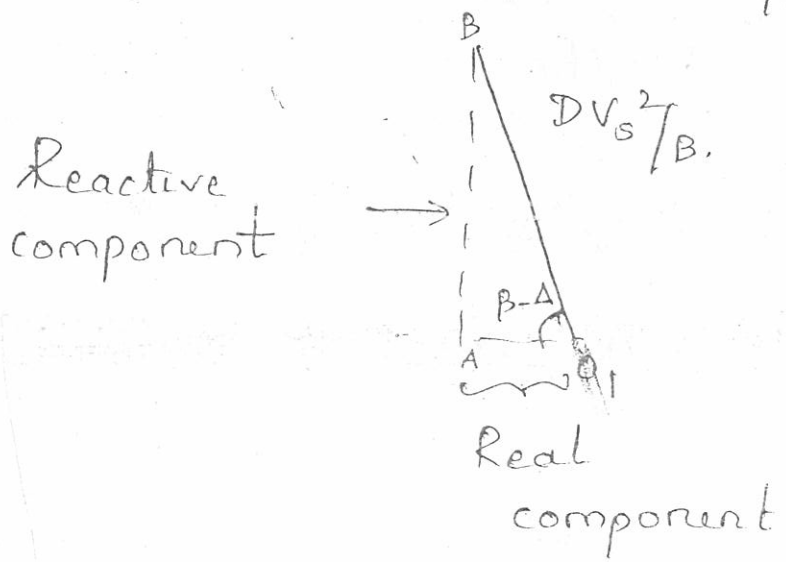 B
DVs²/B.
Reactive
component
β-Δ
A
O
Real
component